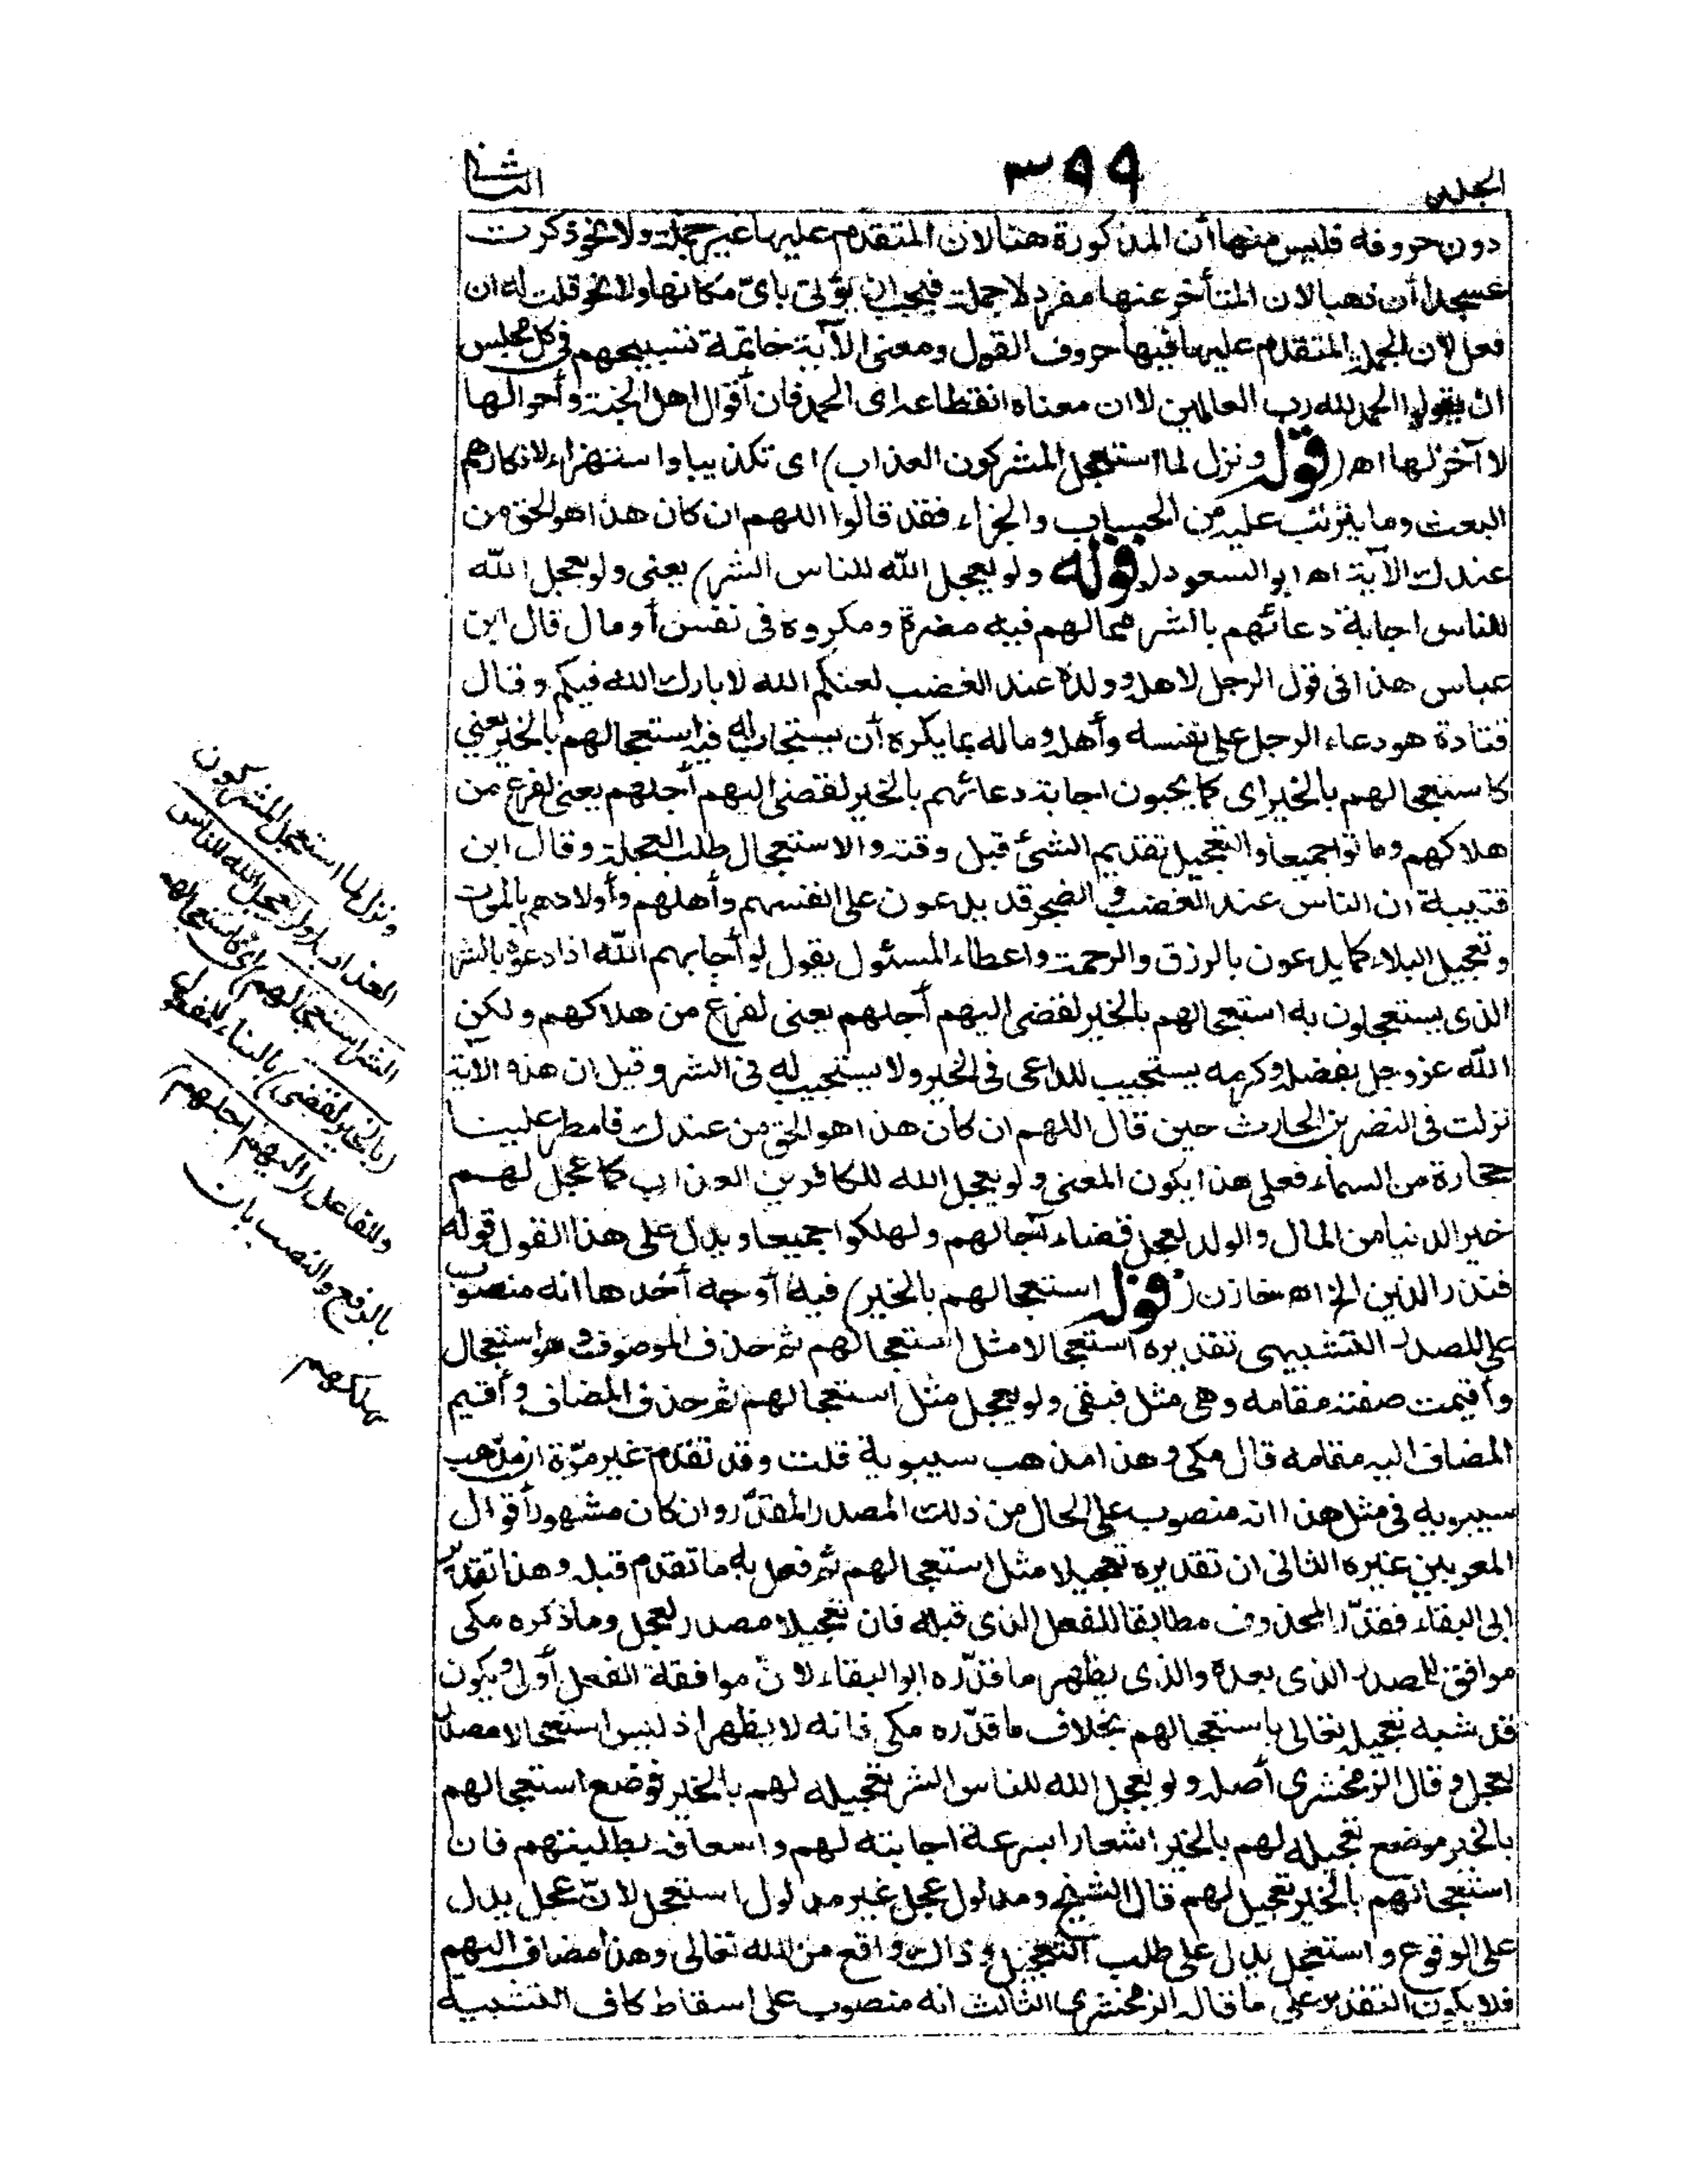 الجلد
٣٩٩
الثانى
دون حروفه فليس منها أن المذكورة هنا لان المتقدم عليها غير جملة ولا نحو ذكرت
عسجدا أن ذهبا لان المتأخر عنها مفرد لا جملة فيجب ان يؤتى باى مكانها ولا نحو قلت له ان
فعل لان الجملة المتقدم عليها فيها حروف القول ومعنى الآية خاتمة تسبيحهم فى كل مجلس
ان يقولوا الحمد لله رب العالمين لا ان معناه انقطاعه اى الحمد فان أقوال اهل الجنة وأحوالها
لا آخر لها اه (قوله ونزل لما استعجل المشركون العذاب) اى تكذيبا واستهزاء لانكارهم
البعث وما يترتب عليه من الحساب والجزاء فقد قالوا اللهم ان كان هذا هو الحق من
عندك الآية اه ابو السعود (قوله ولو يعجل الله للناس الشر) يعنى ولو يعجل الله
للناس اجابة دعائهم بالشر مما لهم فيه مضرة ومكروه فى نفس أو مال قال ابن
عباس هذا فى قول الرجل لاهله وولده عند الغضب لعنكم الله لا بارك الله فيكم وقال
قتادة هو دعاء الرجل على نفسه وأهله وماله بما يكره أن يستجاب له فيه استعجالهم بالخير يعنى
كاستعجالهم بالخير اى كما يحبون اجابة دعائهم بالخير لقضى اليهم أجلهم يعنى لفرغ من
هلاكهم وماتوا جميعا والتعجيل تقديم الشئ قبل وقته والاستعجال طلب العجلة وقال ابن
قتيبة ان الناس عند الغضب والضجر قد يدعون على انفسهم وأهلهم وأولادهم بالموت
وتعجيل البلاء كما يدعون بالرزق والرحمة واعطاء المسئول يقول لو أجابهم الله اذا دعوه بالشر
الذى يستعجلون به استعجالهم بالخير لقضى اليهم أجلهم يعنى لفرغ من هلاكهم ولكن
الله عز وجل بفضله وكرمه يستجيب للداعى فى الخير ولا يستجيب له فى الشر وقيل ان هذه الآية
نزلت فى النضر بن الحارث حين قال اللهم ان كان هذا هو الحق من عندك فامطر علينا
حجارة من السماء فعلى هذا يكون المعنى ولو يعجل الله للكافرين العذاب كما عجل لهم
خير الدنيا من المال والولد لعجل قضاء آجالهم ولهلكوا جميعا ويدل على هذا القول قوله
فنذر الذين الخ اه خازن (قوله استعجالهم بالخير) فيه أوجه أحدها انه منصوب
على المصدر التشبيهى تقديره استعجالا مثل استعجالهم ثم حذف الموصوف وهو استعجال
وأقيمت صفته مقامه وهى مثل فبقى ولو يعجل مثل استعجالهم ثم حذف المضاف وأقيم
المضاف اليه مقامه قال مكى وهذا مذهب سيبويه قلت وقد تقدم غير مرة ان مذهب
سيبويه فى مثل هذا انه منصوب على الحال من ذلك المصدر المقدر وان كان مشهور أقوال
المعربين غيره الثانى ان تقديره تعجيلا مثل استعجالهم ثم فعل به ما تقدم قبله وهذا تقدير
ابى البقاء فقدر المحذوف مطابقا للفعل الذى قبله فان تعجيلا مصدر لعجل وما ذكره مكى
موافق للمصدر الذى بعده والذى يظهر ما قدره ابو البقاء لان موافقة الفعل أولى ويكون
قد شبه تعجيله تعالى باستعجالهم بخلاف ما قدره مكى فانه لا يظهر اذ ليس استعجالا مصدرا
لعجل وقال الزمخشرى أصله ولو يعجل الله للناس الشر تعجيله لهم بالخير فوضع استعجالهم
بالخير موضع تعجيله لهم بالخير اشعارا بسرعة اجابته لهم واسعافه بطلبتهم فان
استعجالهم بالخير تعجيل لهم قال الشيخ ومدلول عجل غير مدلول استعجل لان عجل يدل
على الوقوع واستعجل يدل على طلب التعجيل وذاك واقع من الله تعالى وهذا مضاف اليهم
فلا يكون التقدير على ما قاله الزمخشرى الثالث انه منصوب على اسقاط كاف التشبيه
ونزل لما استعجل المشركون
العذاب (ولو يعجل الله للناس
الشر استعجالهم) اى كاستعجالهم
(بالخير لقضى) بالبناء للمفعول
وللفاعل (اليهم اجلهم)
بالرفع والنصب بان
يهلكهم